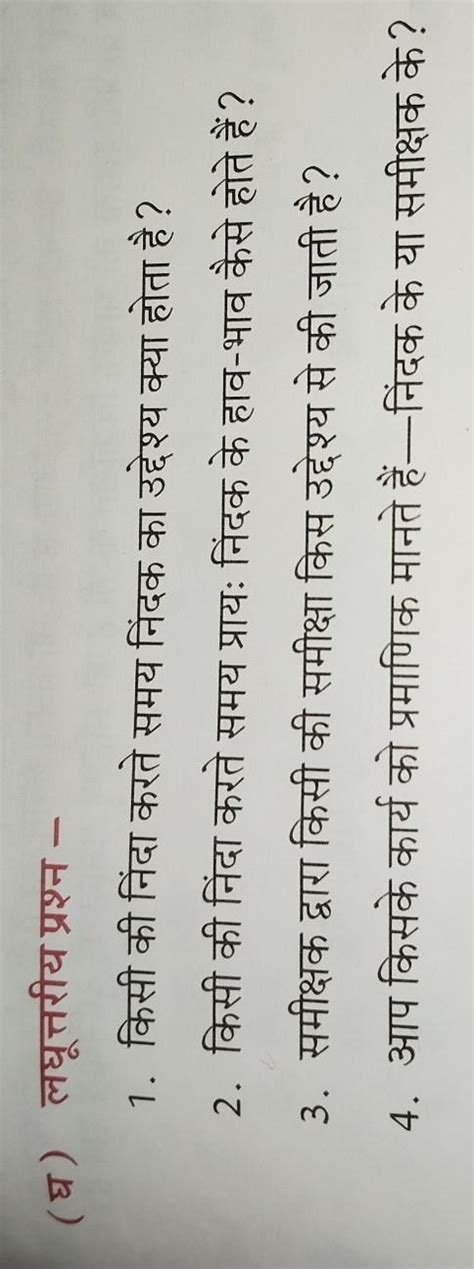 (घ) लघूत्तरीय प्रश्न –
1. किसी की निंदा करते समय निंदक का उद्देश्य क्या होता है?
2. किसी की निंदा करते समय प्रायः निंदक के हाव-भाव कैसे होते हैं?
3. समीक्षक द्वारा किसी की समीक्षा किस उद्देश्य से की जाती है?
4. आप किसके कार्य को प्रमाणिक मानते हैं—निंदक के या समीक्षक के?